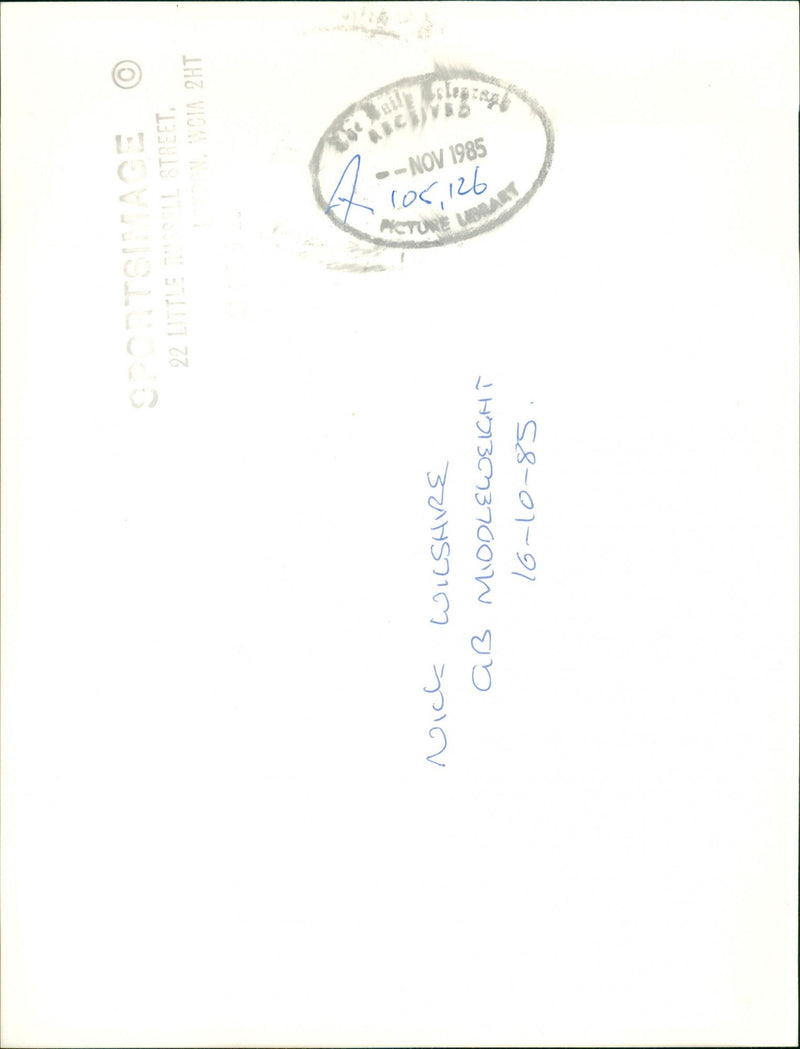 SPORTSIMAGE ©
22 LITTLE RUSSELL STREET,
LONDON, WC1A 2HT
The Daily Telegraph
RECEIVED
--NOV 1985
A 105,126
PICTURE LIBRARY
NICK WILSHIRE
GB MIDDLEWEIGHT
16-10-85.